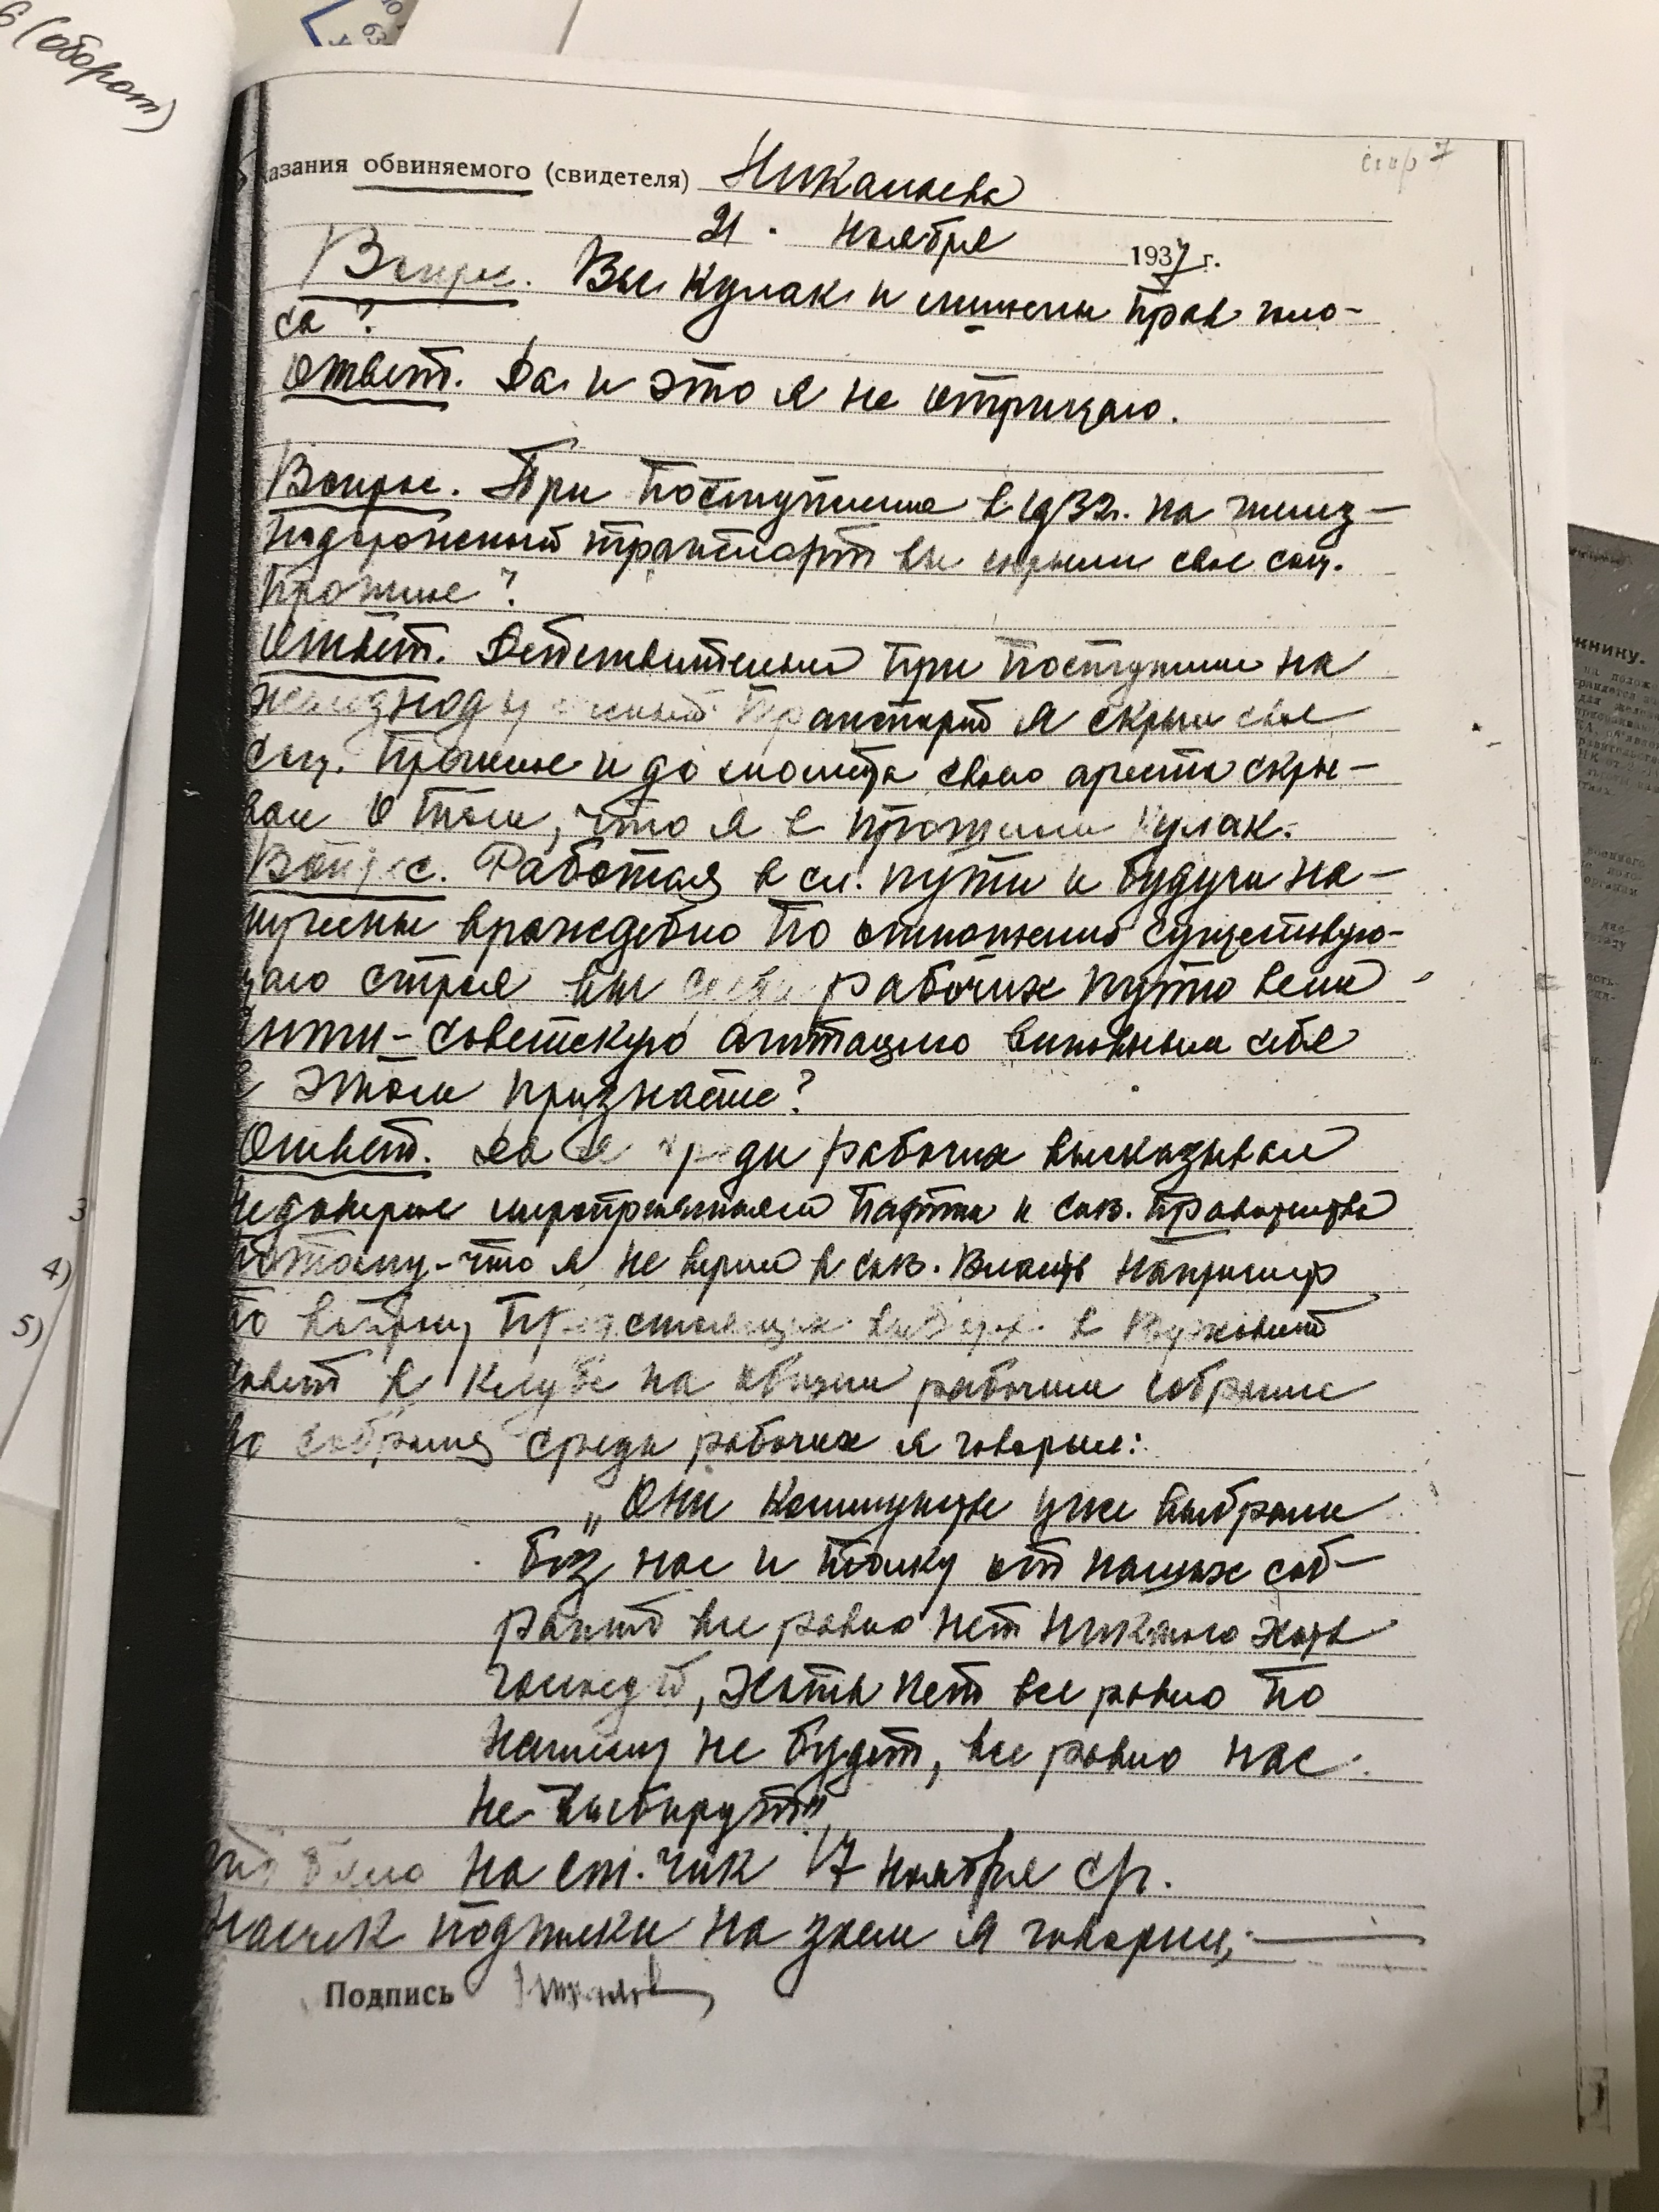 6 (оборот)
стр 7
азания обвиняемого (свидетеля) Николаева
21. Ноября 1937 г.
Вопрос. Вы кулак и лишены прав голо-
са?
Ответ. Да и это я не отрицаю.
Вопрос. При поступлении в 1932 г. на желез-
нодорожный транспорт вы скрыли свое соц.
прошлое?
Ответ. Действительно при поступлении на
железнодорожный транспорт я скрыл свое
соц. прошлое и до момента своего ареста скры-
вал о том, что я в прошлом кулак.
Вопрос. Работая в сл. пути и будучи на-
строены враждебно по отношению существую-
щаго строя вы среди рабочих пути вели
анти-советскую агитацию виновным себя
в этом признаете?
Ответ. Да я среди рабочих высказывал
недоверие мероприятиям партии и сов. правительства
потому-что я не верил в сов. власть например
по вопросу предстоящих выборах в Верховный
совет в клубе на общем рабочим собрание
до собрания среди рабочих я говорил:
„Они коммунисты уже выбрали
без нас и толку от наших соб-
раний все равно нет никакого хоть
голосуй, хоть нет все равно по
нашему не будет, все равно нас
не выбирут"
это было на ст. Чик 17 ноября с/г.
Насчет подписки на заем я говорил;
Подпись
3
4)
5)
жнику.